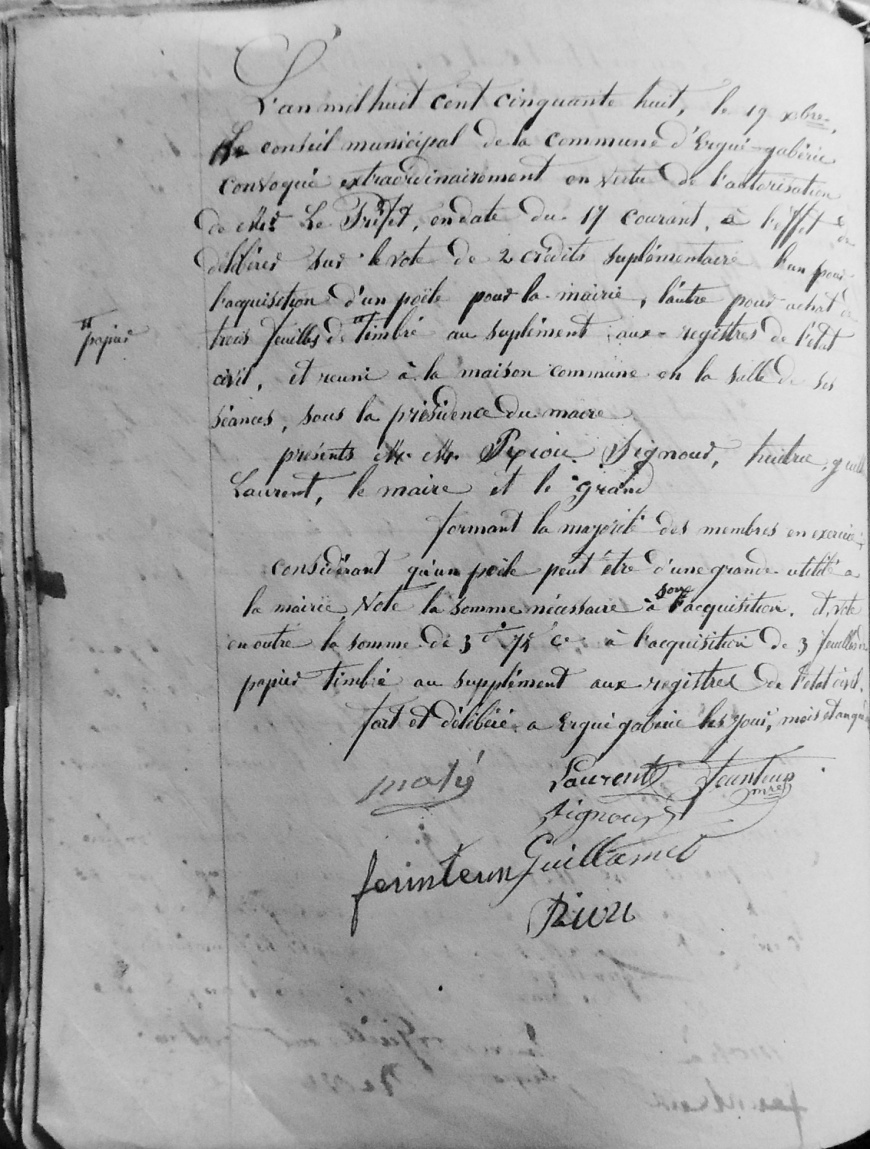 L'an mil huit cent cinquante huit, le 19 xbre,
Le conseil municipal de la commune d'Ergué-gabéric
convoqué extraordinairement en vertu de l'autorisation
de Mr Le Préfet, en date du 17 courant, à l'effet de
délibérer sur le vote de 2 crédits suplémentaire l'un pour
l'acquisition d'un poële pour la mairie, l'autre pour achat de
trois feuilles de " timbré au suplément aux registres de l'état
" papier
civil, et reuni à la maison commune en la salle de ses
séances, sous la présidence du maire
présents M. M. Signour,
Laurent, le maire et le grand
formant la majorité des membres en exercice
considérant qu'un poële peut être d'une grande utilité a
la mairie, Vote la somme nécessaire à son l'acquisition, et vote
en outre la somme de 3 f 75 c, à l'acquisition de 3 feuilles de
papier timbré au supplément aux registres de l'état civil.
fait et délibéré a Ergué gabéric les jour, mois et an que
mahé Laurent feunteun
mre
Signour
feunteun Guillamet
Riou